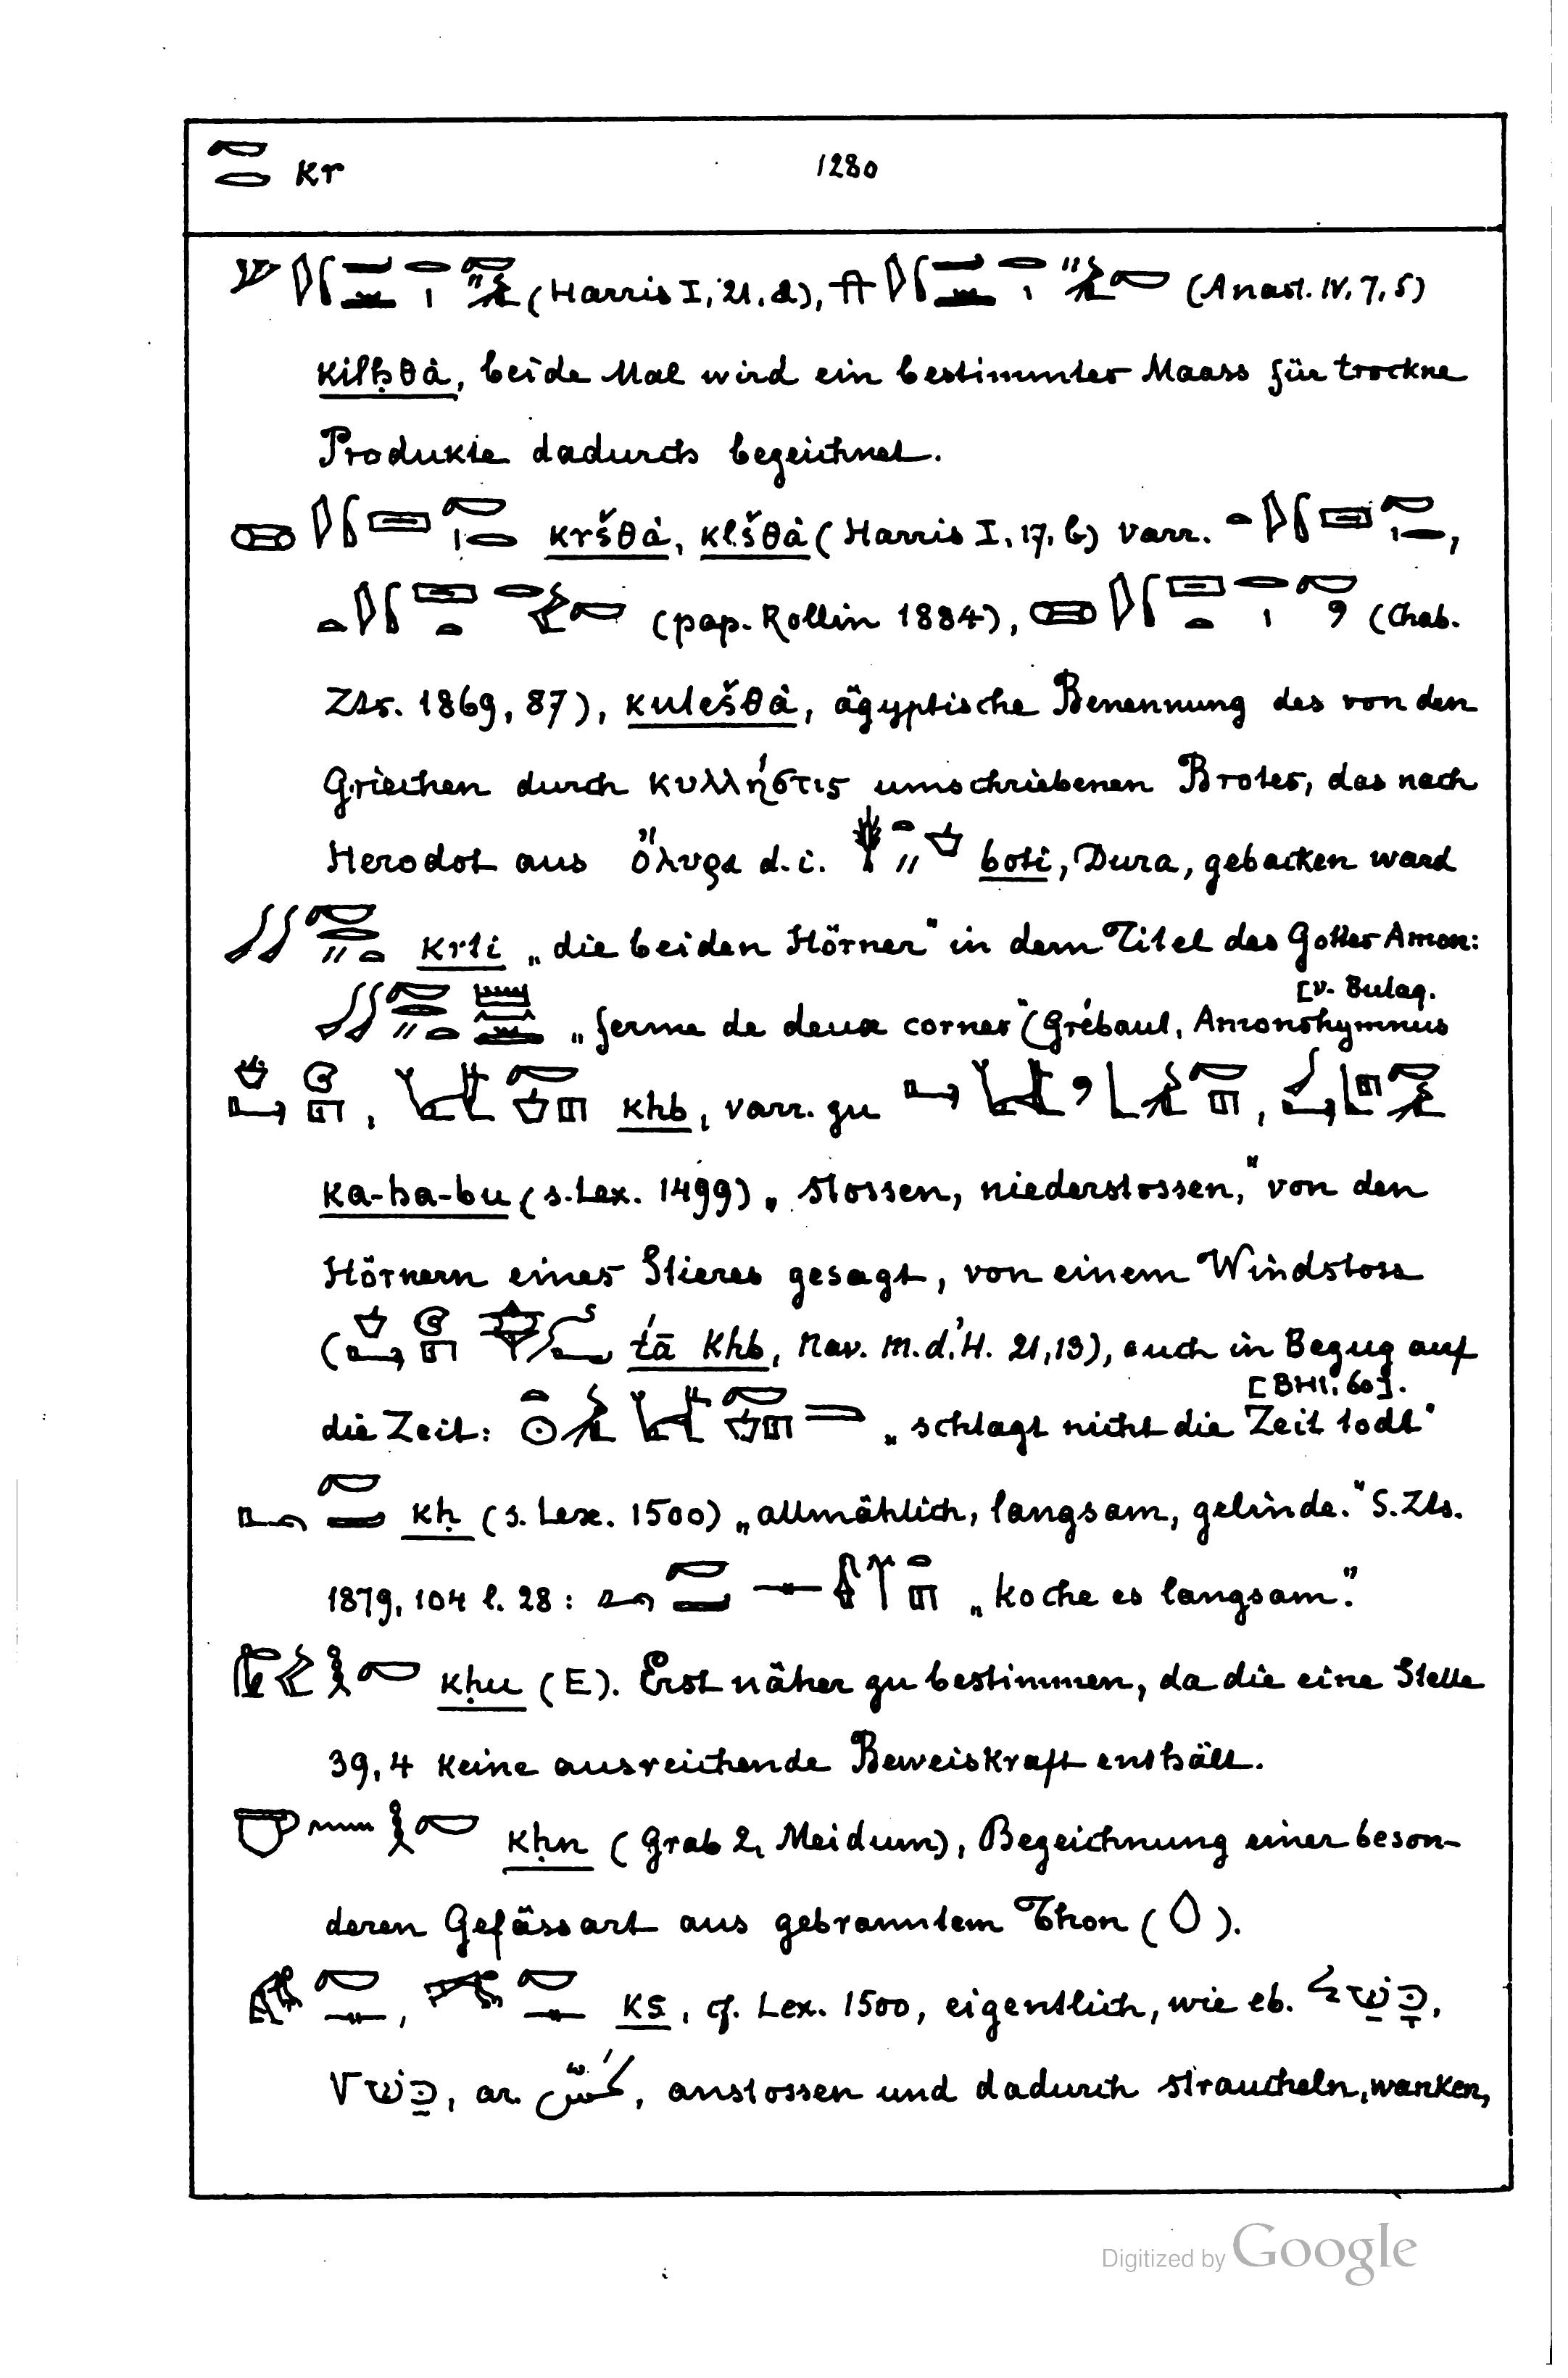 kr 1280
(Harris I, 21, a), (Anast. IV. 7, 5)
kilḫθȧ, beide Mal wird ein bestimmtes Maass für trockne
Produkte dadurch bezeichnet.
kršθȧ, klšθȧ (Harris I, 17, b) varr. ,
(pap. Rollin 1884), (Chab.
Zts. 1869, 87), kulešθȧ, ägyptische Benennung des von den
Griechen durch κυλλήστις umschriebenen Brotes, das nach
Herodot aus ὄλυρα d. i. boti, Dura, gebacken ward
krti „die beiden Hörner“ in dem Titel des Gottes Amon:
„ferme de deux cornes“ (Grébaut, Amonshymnus
[v. Bulaq.
, khb, varr. zu ,
ka-ha-bu (s. Lex. 1499) „stossen, niederstossen,“ von den
Hörnern eines Stieres gesagt, von einem Windstoss
( khb, Nav. M. d'H. 21, 13), auch in Bezug auf
die Zeit: „schlagt nicht die Zeit todt“
[BHI. 60].
kḥ (s. Lex. 1500) „allmählich, langsam, gelinde.“ S. Zts.
1879, 104 l. 28: „koche es langsam.“
kḥu (E). Erst näher zu bestimmen, da die eine Stelle
39, 4 keine ausreichende Beweiskraft enthält.
kḥn (Grab 2, Meidum), Bezeichnung einer beson-
deren Gefässart aus gebranntem Thon ( ).
, ks, cf. Lex. 1500, eigentlich, wie eb. כָּשַׁל,
, ar. , anstossen und dadurch straucheln, wanken,
Digitized by Google